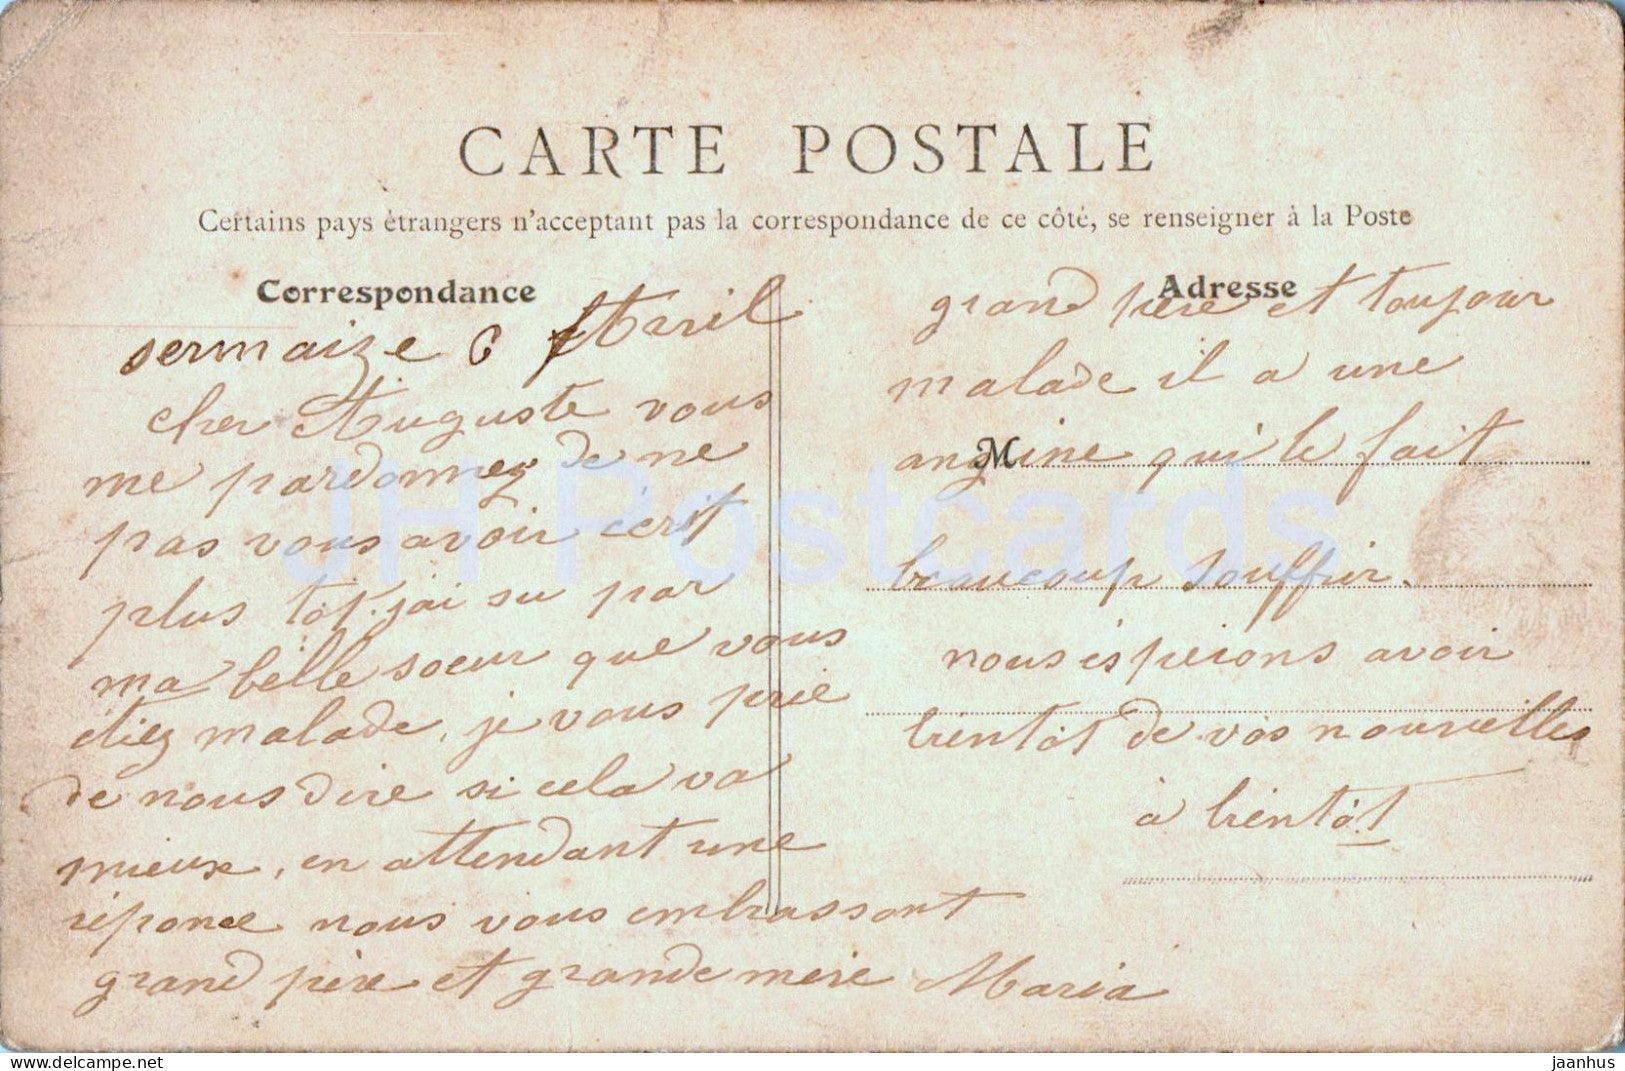 CARTE POSTALE
Certains pays étrangers n'acceptent pas la correspondance de ce côté, se renseigner à la Poste
Correspondance
sermaize 6 Avril
cher Auguste vous
me pardonnez de ne
pas vous avoir écrit
plus tôt. j'ai su par
ma belle soeur que vous
étiez malade, je vous prie
de nous dire si cela va
mieux, en attendant une
réponce nous vous embrassont
grand père et grande mère Maria
Adresse
grand père et toujour
malade il a une
M
angine qui le fait
beaucoup souffrir.
nous éspérons avoir
bientôt de vos nouvelles
à bientôt
JH Postcards
delcampe.net
jaanhus